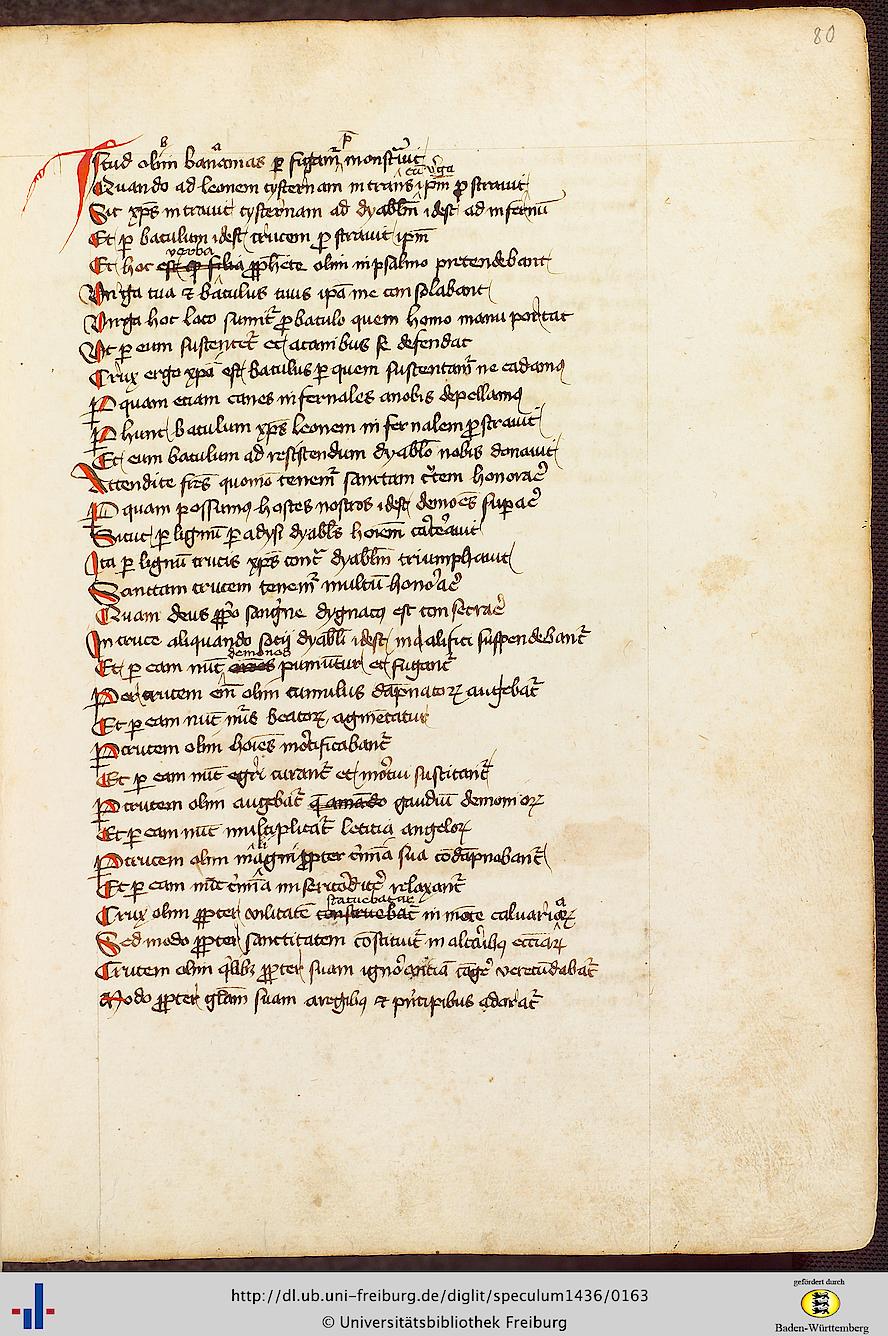 80
Istud olim banaias per figuram monstrauit
Quando ad leonem cysternam intrans cum virga ipm prostrauit
Sic xps intrauit cysternam ad dyabolum idest ad infernū
Et per baculum idest crucem prostrauit ipm
Et hoc verba pphete olim in psalmo pretendebant
Virga tua et baculus tuus ipa me consolabant
Virga hoc loco sumit̄ p baculo quem homo manu portat
Vt per eum sustentet̄ et a canibus se defendat
Crux ergo xpi est baculus per quem sustentam̄ ne cadamus
Per quam etiam canes infernales a nobis depellamus
Per hunc baculum xps leonem infernalem prostrauit
Et eum baculum ad resistendum dyabolo nobis donauit
Attendite frēs quomo tenem̄ sanctam crucem honorare
Per quam possumus hostes nostros idest demones superare
Sicut per lignū paradysi dyabolus hoīem
Ita per lignū crucis xps contra dyabolum triumphauit
Sanctam crucem tenem̄ multū honorare
Quam deus pprio sangwine dygnatus est consecrare
In cruce aliquando socii dyaboli idest malifici suspendebant̄
Et per eam nūc demones puniuntur et fugant̄
Per crucem eni olim cumulus dāpnatorum augebat̄
Et per eam nūc nūs beatorum agmentatur
Per crucem olim hoīes mortificabant̄
Et per eam nūc egri curant̄ et mortui suscitant̄
Per crucem olim augebat̄ gaudiū demoniorum
Et per eam nūc multiplicat̄ leticia angelorum
Per crucem olim maligni ppter crimīa sua cōdāpnabant̄
Et per eam nūc crimīa misericorditer relaxant̄
Crux olim ppter vilitatē statuebatur in mōte caluariarum
Sed modo ppter sanctitatem cōstituit̄ in altaribus ecciarum
Crucem olim quilibet ppter suam ignorantiā tangere verecūdabat̄
Modo ppter gloriam suam a regibus et principibus adorat̄
http://dl.ub.uni-freiburg.de/diglit/speculum1436/0163
© Universitätsbibliothek Freiburg
gefördert durch
Baden-Württemberg